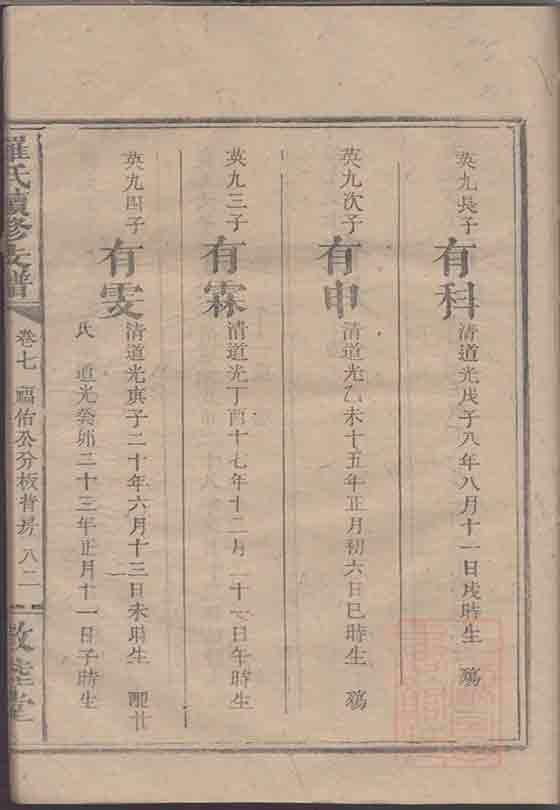 英九長子
有科
清道光戊子八年八月十一日戌時生 殤
英九次子
有申
清道光乙未十五年正月初六日巳時生 殤
英九三子
有霖
清道光丁酉十七年十二月二十一日午時生
英九四子
有雯
清道光庚子二十年六月十三日未時生 配廿
氏 道光癸卯二十三年正月十一日子時生
羅氏續修支譜
卷七 福佑公分板背塝 八二
敦睦堂